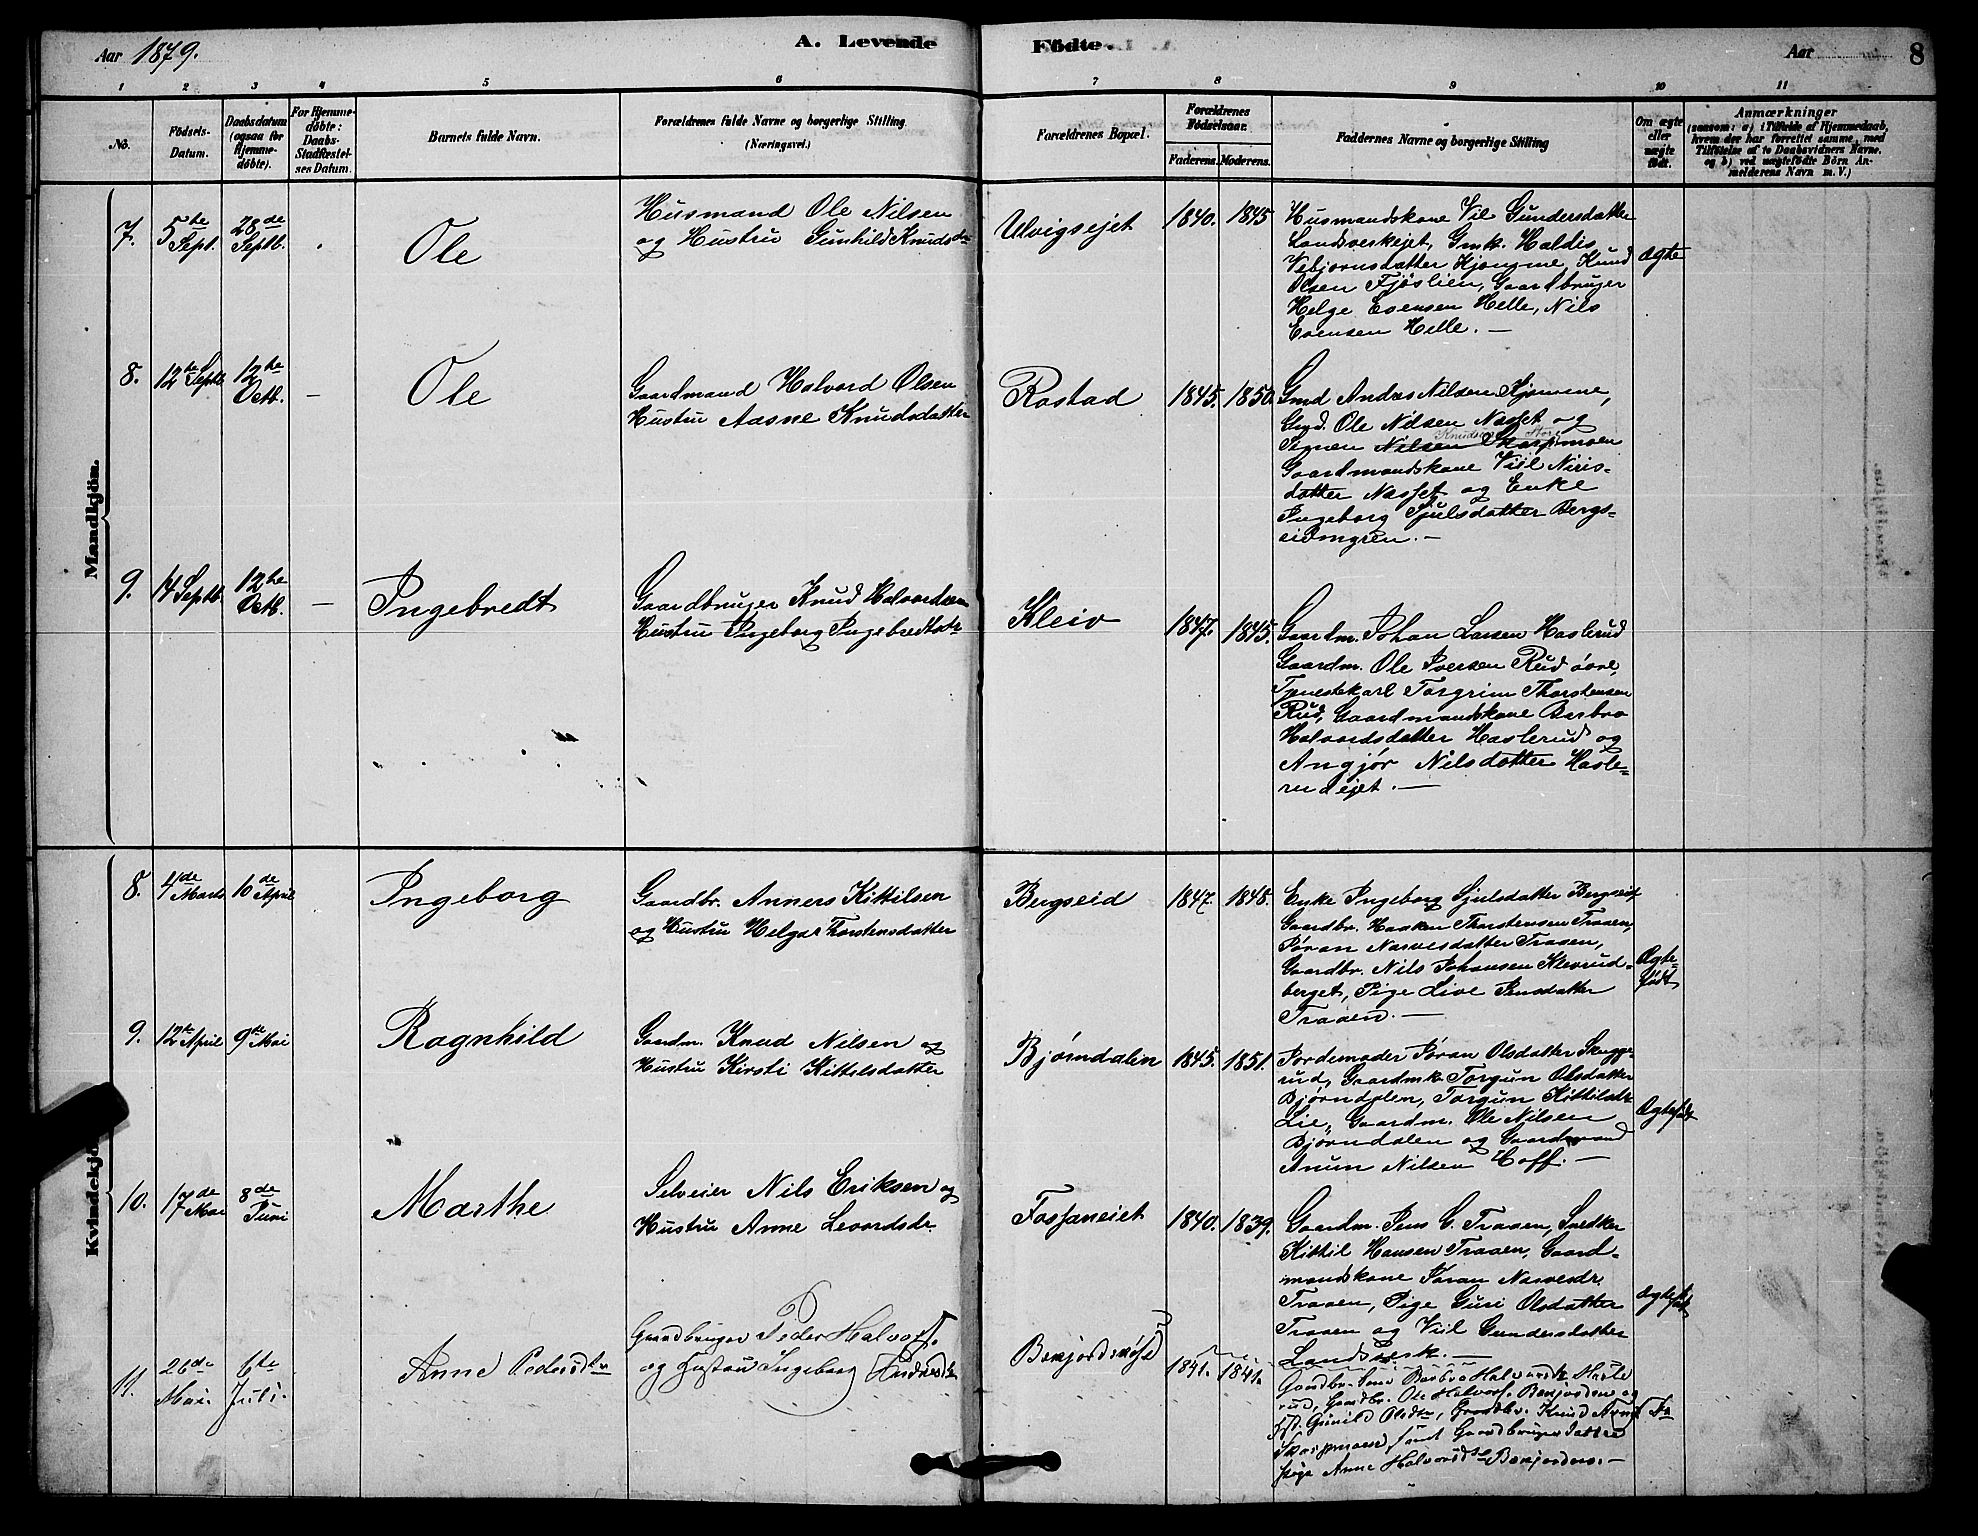 Aar 1879.
A. Levende
Födte.
Aar
8
1 2 3 4 5 6 7 8 9 10 11
No.
Födsels-
Datum.
Daabsdatum
(ogsaa for
Hjemme-
döbte).
For Hjemme-
döbte:
Daabs-
Stadfæstel-
ses Datum.
Barnets fulde Navn.
Forældrenes fulde Navne og borgerlige Stilling
(Næringsvei.)
Forældrenes Bopæl.
Forældrenes
Födselsaar.
Faderens. Moderens.
Faddernes Navne og borgerlige Stilling
Om ægte
eller
uægte
födt.
Anmærkninger
(saasom: a) i Tilfælde af Hjemmedaab,
hvem der har forrettet samme, med
Tilföielse af to Daabsvidners Navne,
og b) ved uægtefödte Börn An-
melderens Navn m. V.)
Mandkjön.
7.
5te
Sept.
28de
Septb.
Ole
Husmand Ole Nilsen
og Hustru Gunhild Knudsd
Ulvigsejet
1840. 1845
Husmandskone Vil Gundersdatter
Landsverkejet, Gmk. Haldis
Vebjørnsdatter Kjømme, Knud
Olsen Fjøslien, Gaardbruger
Helge Evensen Helle, Nils
Evensen Helle. —
ægte
8.
12te Septb.
12te
Octb.
—
Ole
Gaardmand Halvord Olsen
Hustru Aasne Knudsdatter
Rostad
1845. 1850.
Gmd Anders Nilsen Kjømme,
Gmd. Ole Nilsen Næsset og
Knudsen
Nilsen
Gaardmandskone Viil Niris-
datter Næsset og Enke
Ingeborg Sjulsdatter Bergs-
eidmyren. —
9.
14 Septb.
12te
Octb.
—
Ingebredt
Gaardbruger Knud Halvordsen
Hustru Ingeborg Ingebredtsdtr
Kleiv
1847. 1845.
Gaardm. Johan Larsen Haslerud
Gaardm. Ole Iversen Rud øvre,
Tjenestekarl Torgrim Thorstensen
Rud, Gaardmandskone Barbro
Halvordsdatter Haslerud og
Angjør Nilsdatter Hasle-
rudejet. —
Kvindekjö
8.
4de
Marts
10de
April
Ingeborg
Gaardbr. Anners Kittilsen
og Hustru Helga Thorstensdatter
Bergseid
1847. 1848.
Enke Ingeborg Sjulsdatter Bergseid
Gaardbr. Haaken Thorstensen Traaen,
Jøran Narvesdatter Traaen,
Gaardbr. Nils Johansen Klevrud-
berget, Pige Live Jensdatter
Traaen. —
Ægte-
født
9.
12te April
9de Mai
Ragnhild
Gaardm. Knud Nilsen og
Hustru Kirsti Kittelsdatter
Bjørndalen
1845. 1851.
Jordemoder Jøran Olsdatter Skugge-
rud, Gaardmk Torgun Olsdatter
Bjørndalen, Torgun Kittilsdtr
Lie, Gaardm. Ole Nilsen
Bjørndalen og Gaardmand
Anun Nilsen Hoff. —
Ægtefødt
10.
17de
Mai
8de
Juni
Marthe
Selveier Nils Eriksen og
Hustru Anne Levordsdr.
Fossaneiet
1840. 1839.
Gaardm. Jens C. Traaen, Snedker
Kittil Hansen Traaen, Gaard-
mandskone Jøran Narvesdr.
Traaen, Pige Guri Olsdatter
Traaen og Viil Gundersdatter
Landsverk. —
ægtefødt
11.
26de
Mai.
6te
Juli.
Anne Pedersdtr
Gaardbruger Peder Halvors.
og Hustru Ingeborg
1841. 1841.
Gaardbr. Barbro Halvorsdtr Hasle
rud, Gaardbr. Ole Halvors. og
Gunild Olsdtr, Gaardbr. Knud
samt Gaardbruger datter
Pige Anne Halvorsdtr —